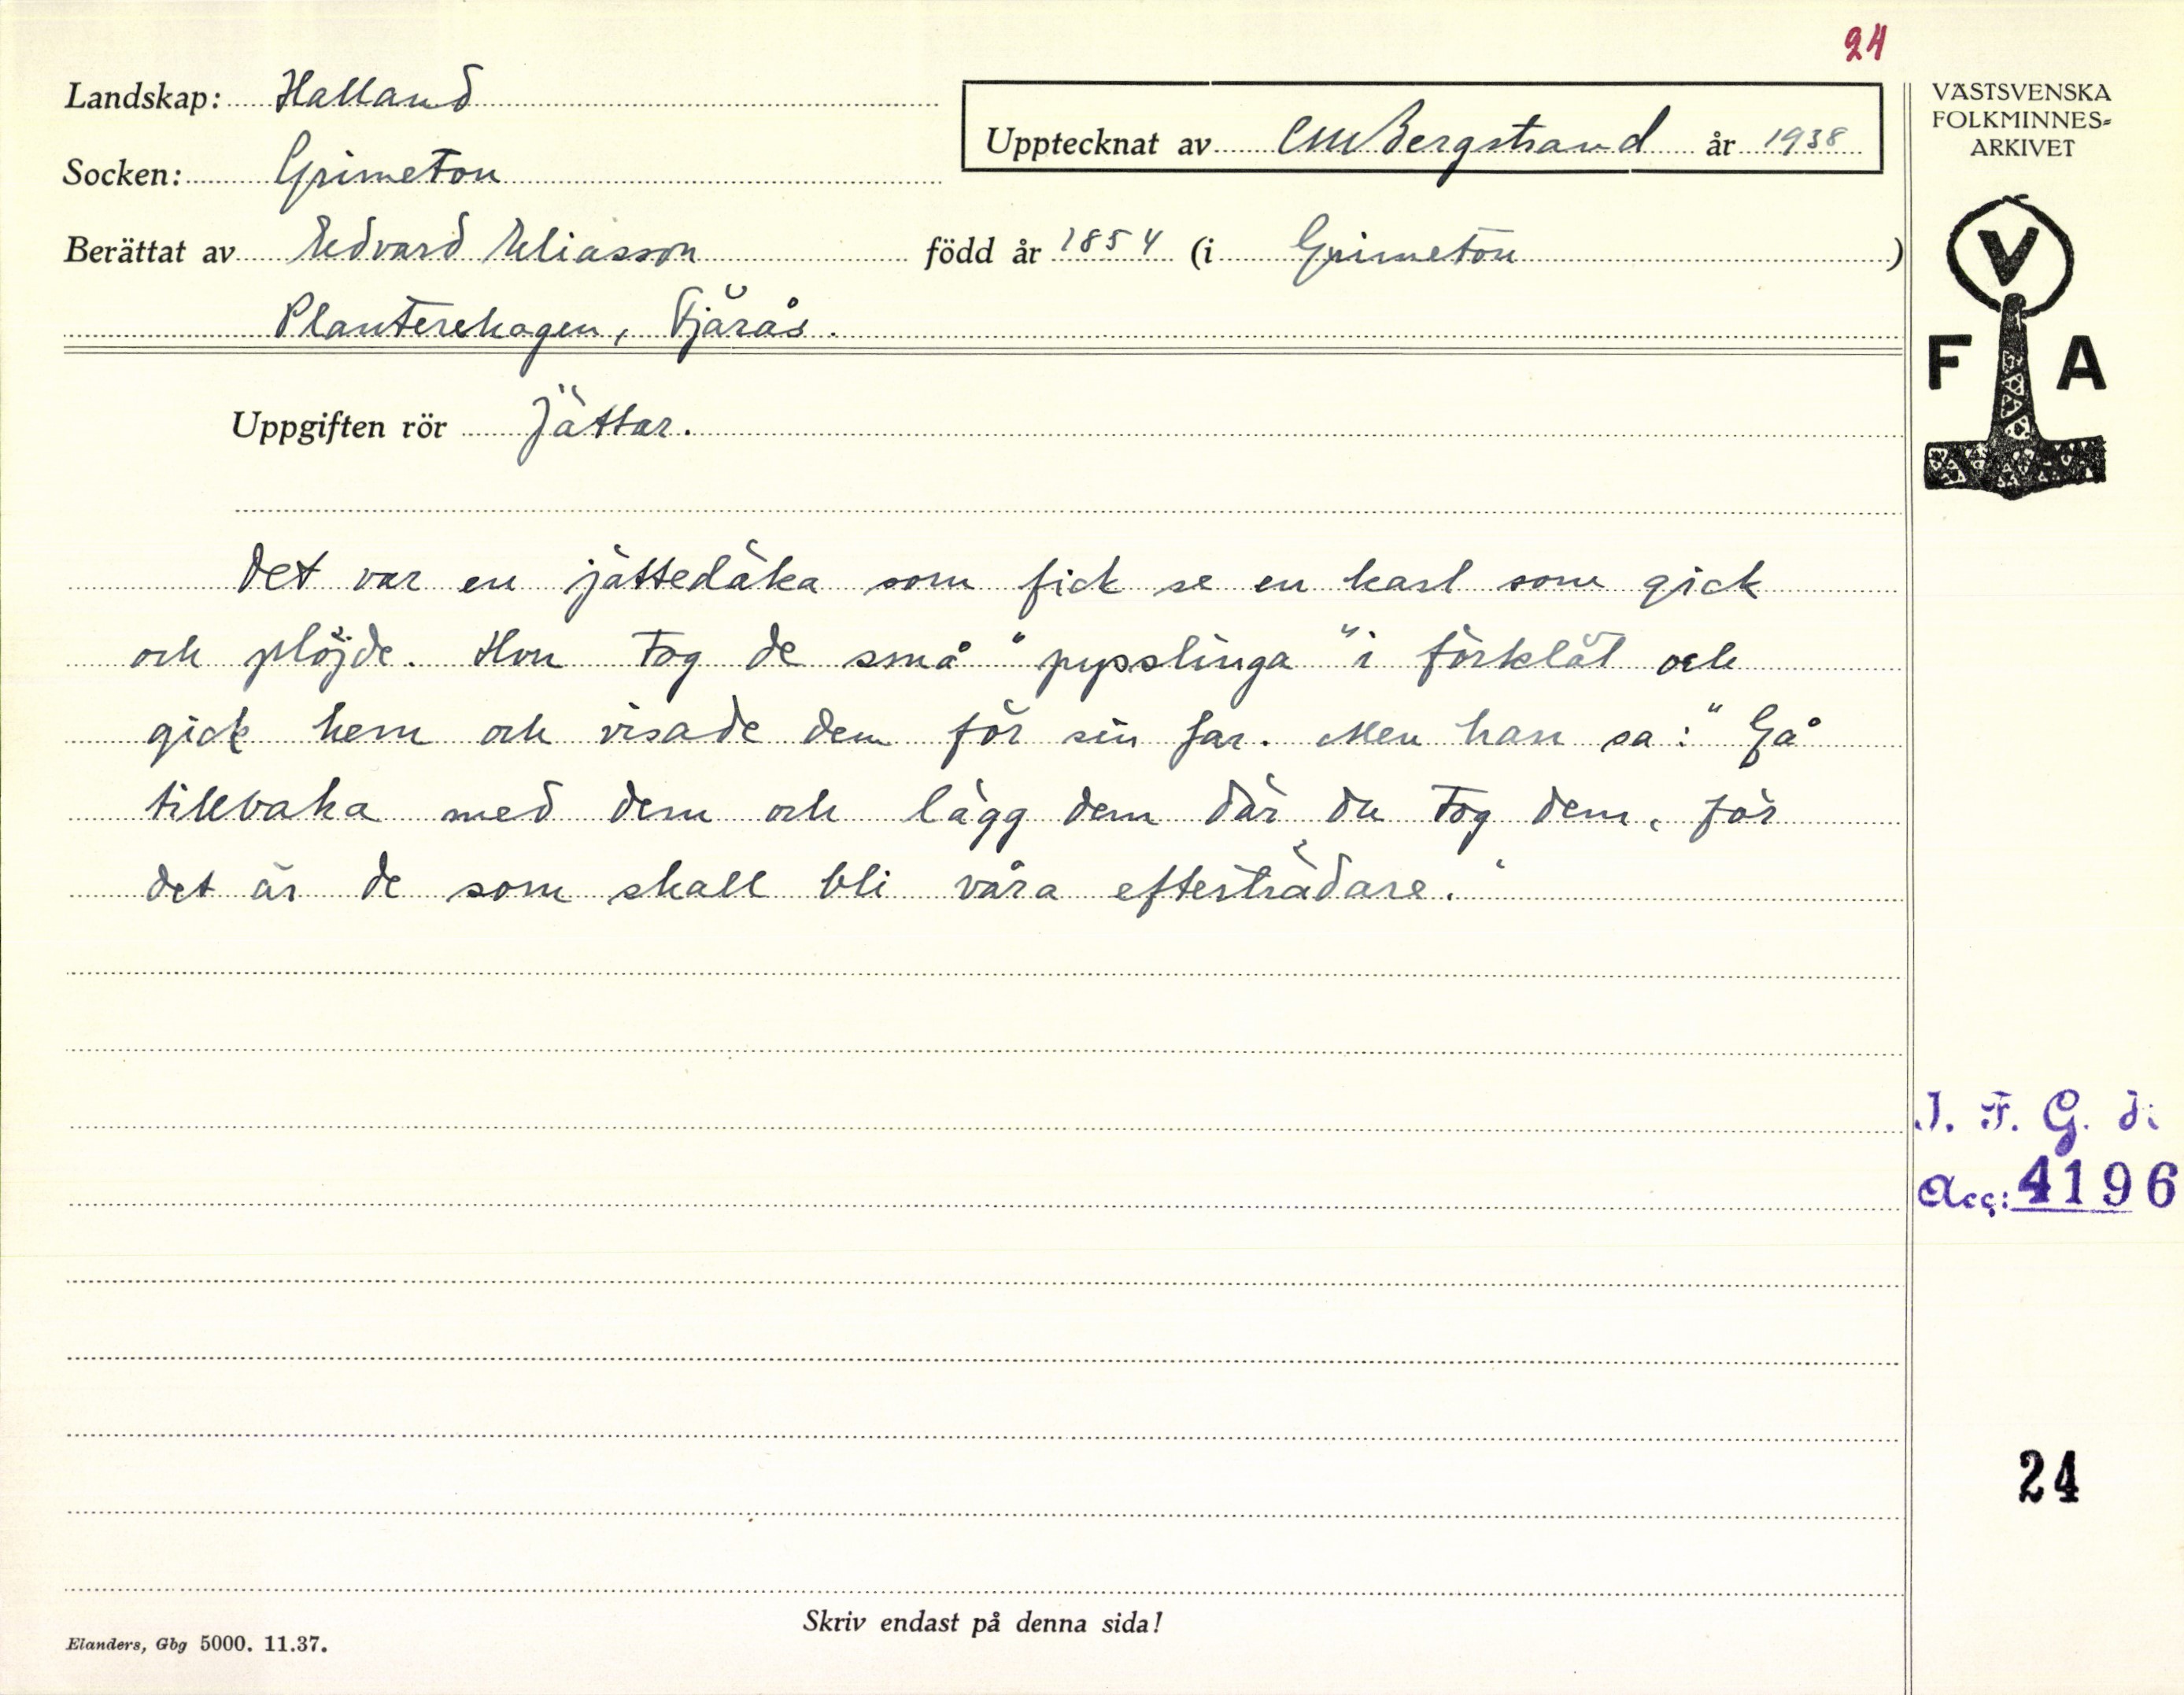 24
Landskap: Halland
Socken: Grimeton
Upptecknat av CMBergstrand år 1938
Berättat av Edvard Eliasson född år 1854 (i Grimeton)
Planterehagen, Fjärås.
Uppgiften rör Jättar.
Det var en jättedäka som fick se en karl som gick
och plöjde. Hon tog de små "pysslinga" i förklät och
gick hem och visade dem för sin far. Men han sa: "Gå
tillbaka med dem och lägg dem där du tog dem, för
det är de som skall bli våra efterträdare."
Skriv endast på denna sida!
Elanders, Gbg 5000. 11.37.
VÄSTSVENSKA
FOLKMINNES=
ARKIVET
V
F A
I. F. G. s.
Acc: 4196
24